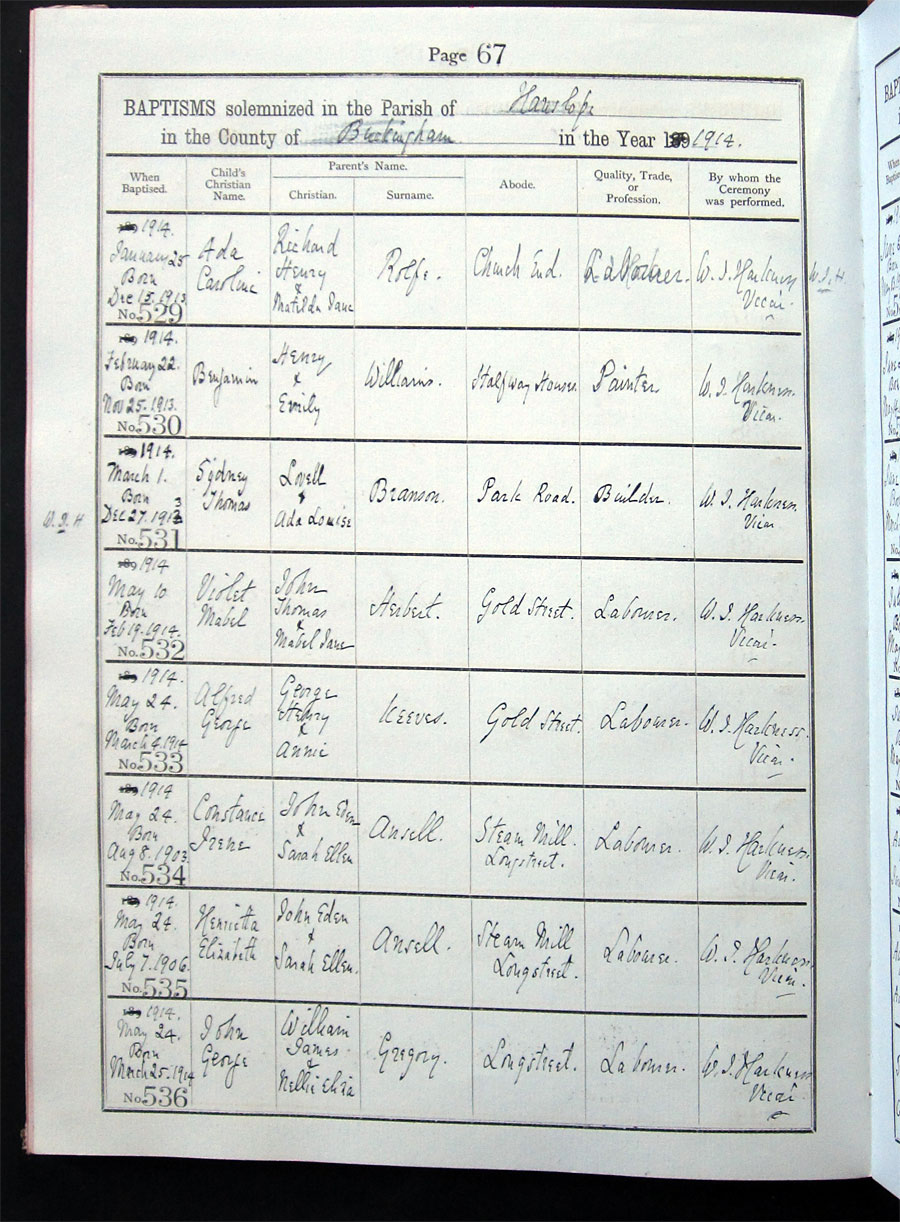 Page 67
BAPTISMS solemnized in the Parish of Hanslope
in the County of Buckingham in the Year 189 1914.
When Baptised.
Child's Christian Name.
Parent's Name.
Christian.
Surname.
Abode.
Quality, Trade, or Profession.
By whom the Ceremony was performed.
189 1914.
January 25
Born
Dec 15. 1913
No. 529
Ada
Caroline
Richard
Henry
&
Matilda Jane
Rolfe.
Church End.
Labourer.
W. J. Harkness
Vicar.
W. J. H
189 1914.
February 22.
Born
Nov 25. 1913.
No. 530
Benjamin
Henry
&
Emily
Williams.
Halfway Houses.
Painter
W. J. Harkness.
Vicar.
189 1914.
March 1.
Born
Dec 27. 1913
3
No. 531
W. J. H
Sydney
Thomas
Lovell
&
Ada Louise
Branson.
Park Road.
Builder.
W. J. Harkness.
Vicar
189 1914
May 10
Born
Feb 19. 1914.
No. 532
Violet
Mabel
John
Thomas
&
Mabel Jane
Herbert.
Gold Street.
Labourer.
W. J. Harkness.
Vicar.
189 1914.
May 24.
Born
March 4. 1914
No. 533
Alfred
George
George
Henry
&
Annie
Keeves.
Gold Street.
Labourer.
W. J. Harkness.
Vicar.
189 1914
May 24.
Born
Aug 8. 1903.
No. 534
Constance
Irene
John Eden
&
Sarah Ellen
Ansell.
Steam Mill.
Longstreet.
Labourer.
W. J. Harkness.
Vicar.
189 1914.
May 24.
Born
July 7. 1906.
No. 535
Henrietta
Elizabeth
John Eden
&
Sarah Ellen.
Ansell.
Steam Mill
Longstreet.
Labourer.
W. J. Harkness.
Vicar.
189 1914.
May 24.
Born
March 25. 1914
No. 536
John
George
William
James
&
Nellie Eliza
Gregory.
Longstreet.
Labourer.
W. J. Harkness
Vicar